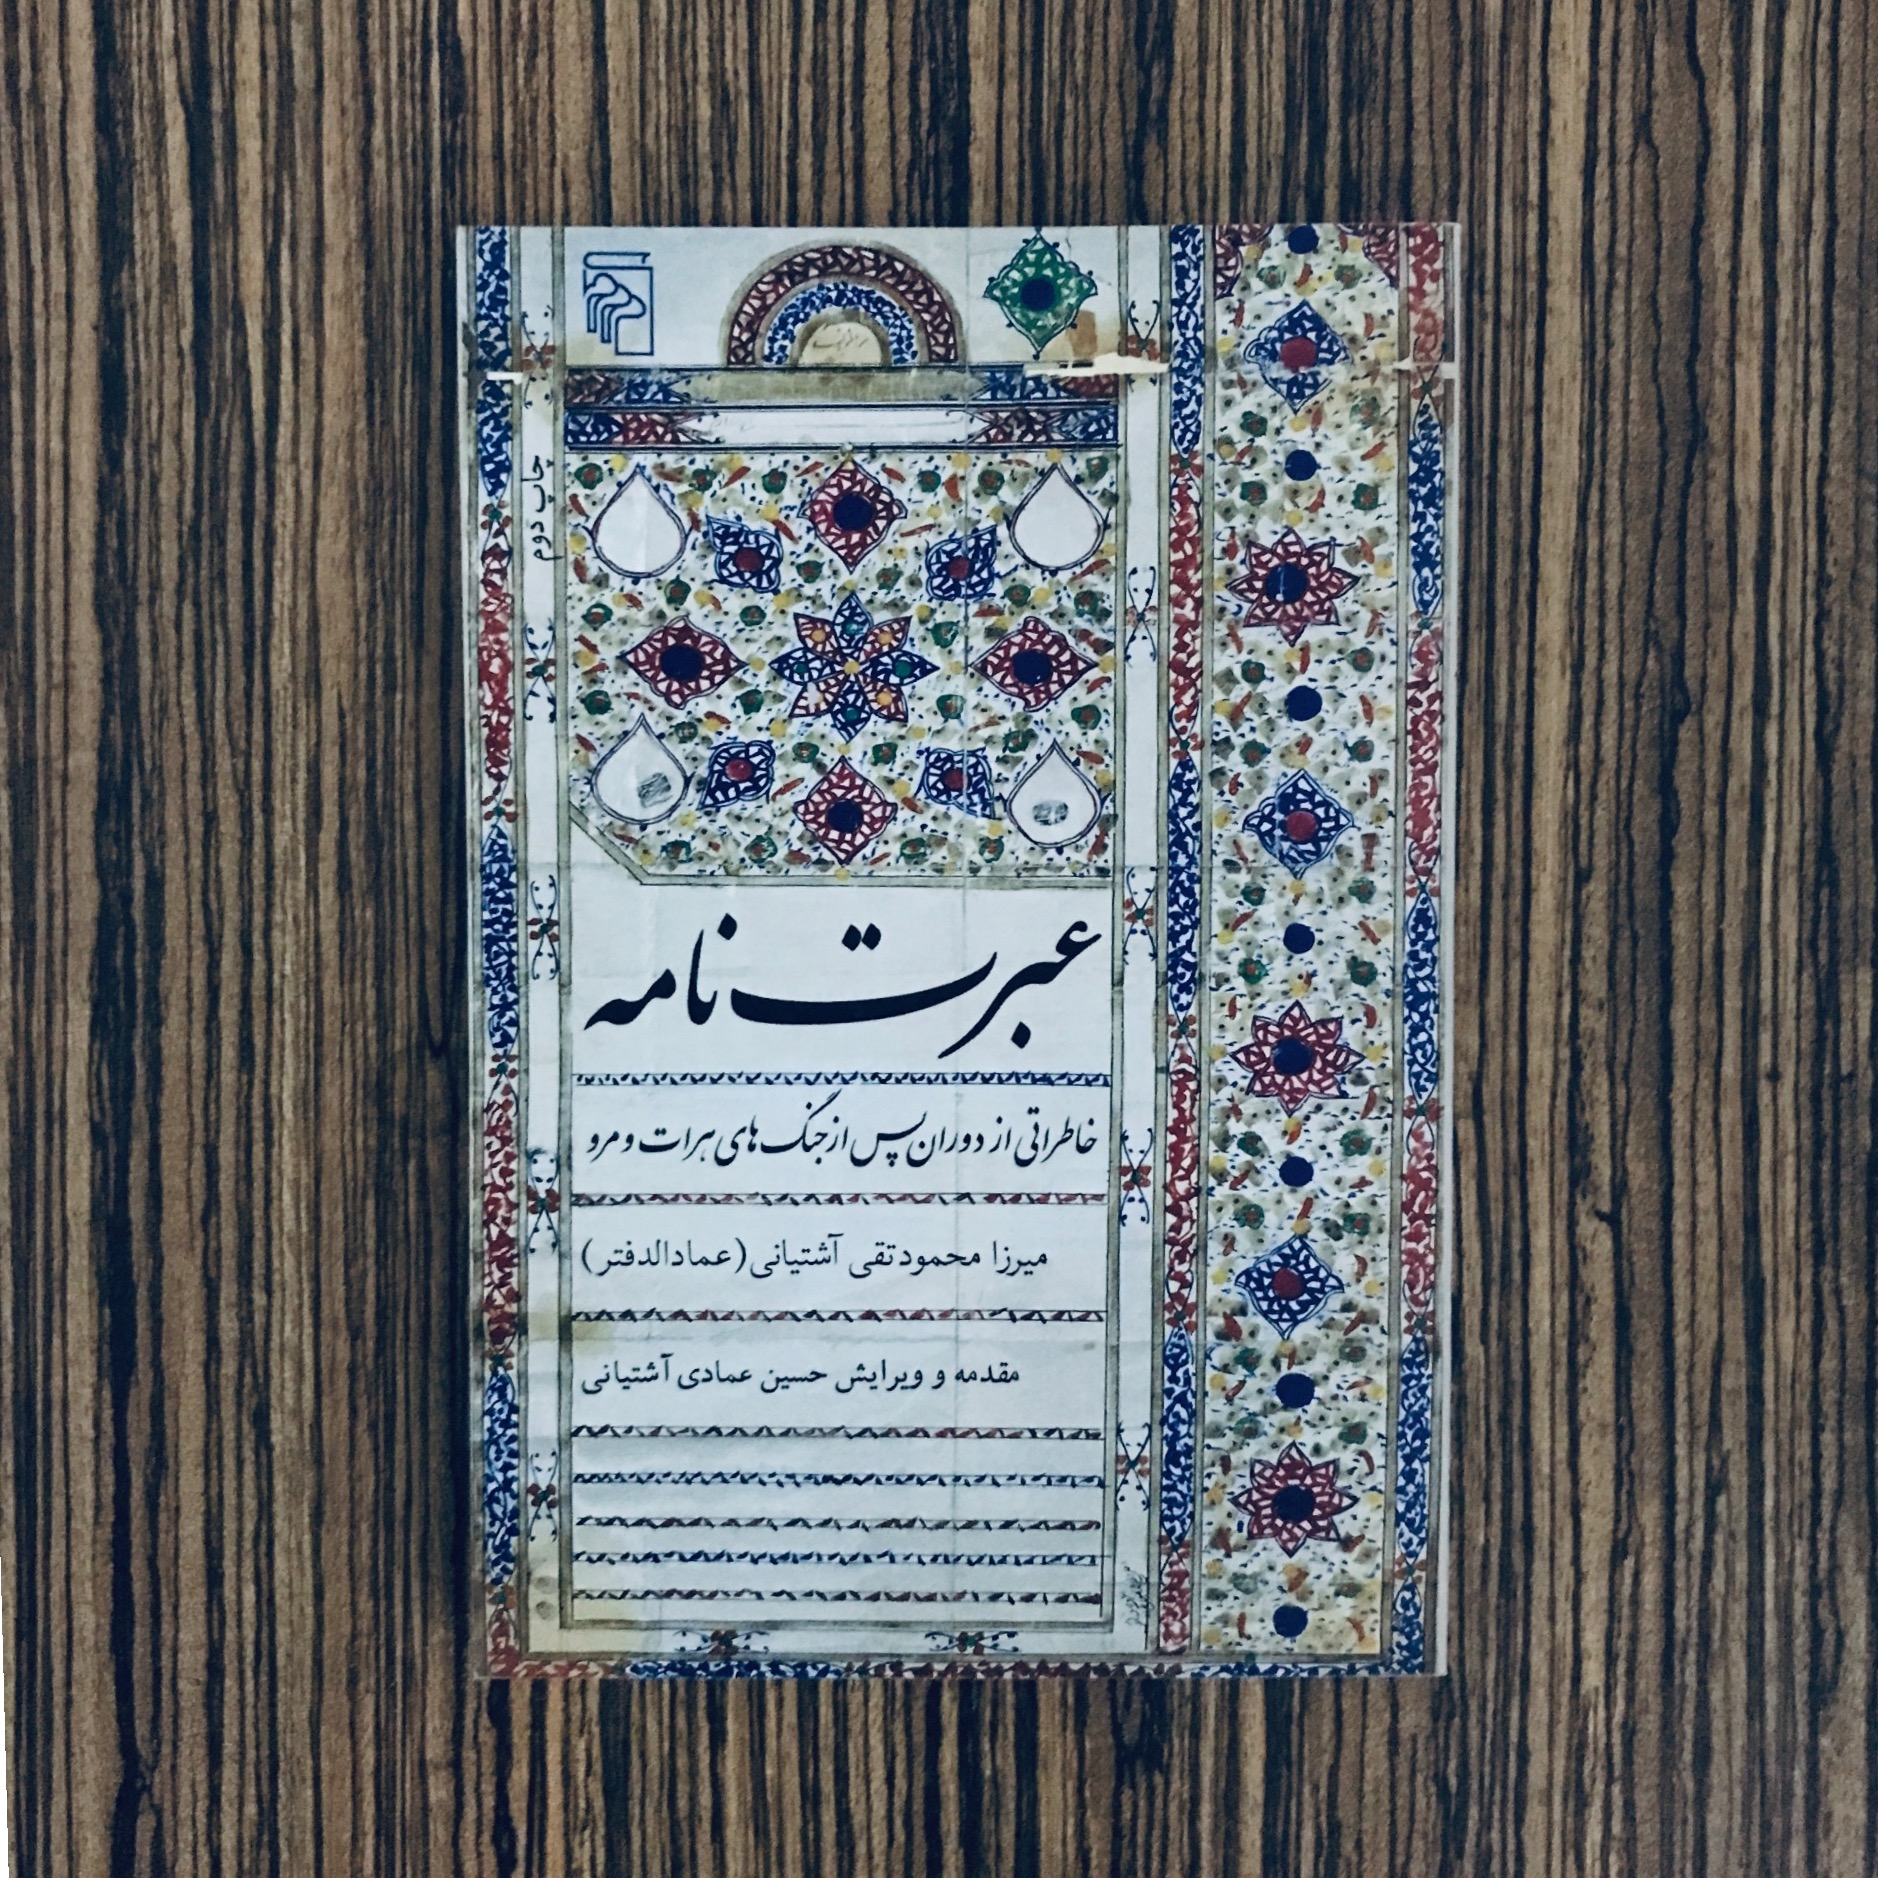 چاپ دوم
عبرت نامه
خاطراتی از دوران پس از جنگ های هرات و مرو
میرزا محمودتقی آشتیانی (عمادالدفتر)
مقدمه و ویرایش حسین عمادی آشتیانی